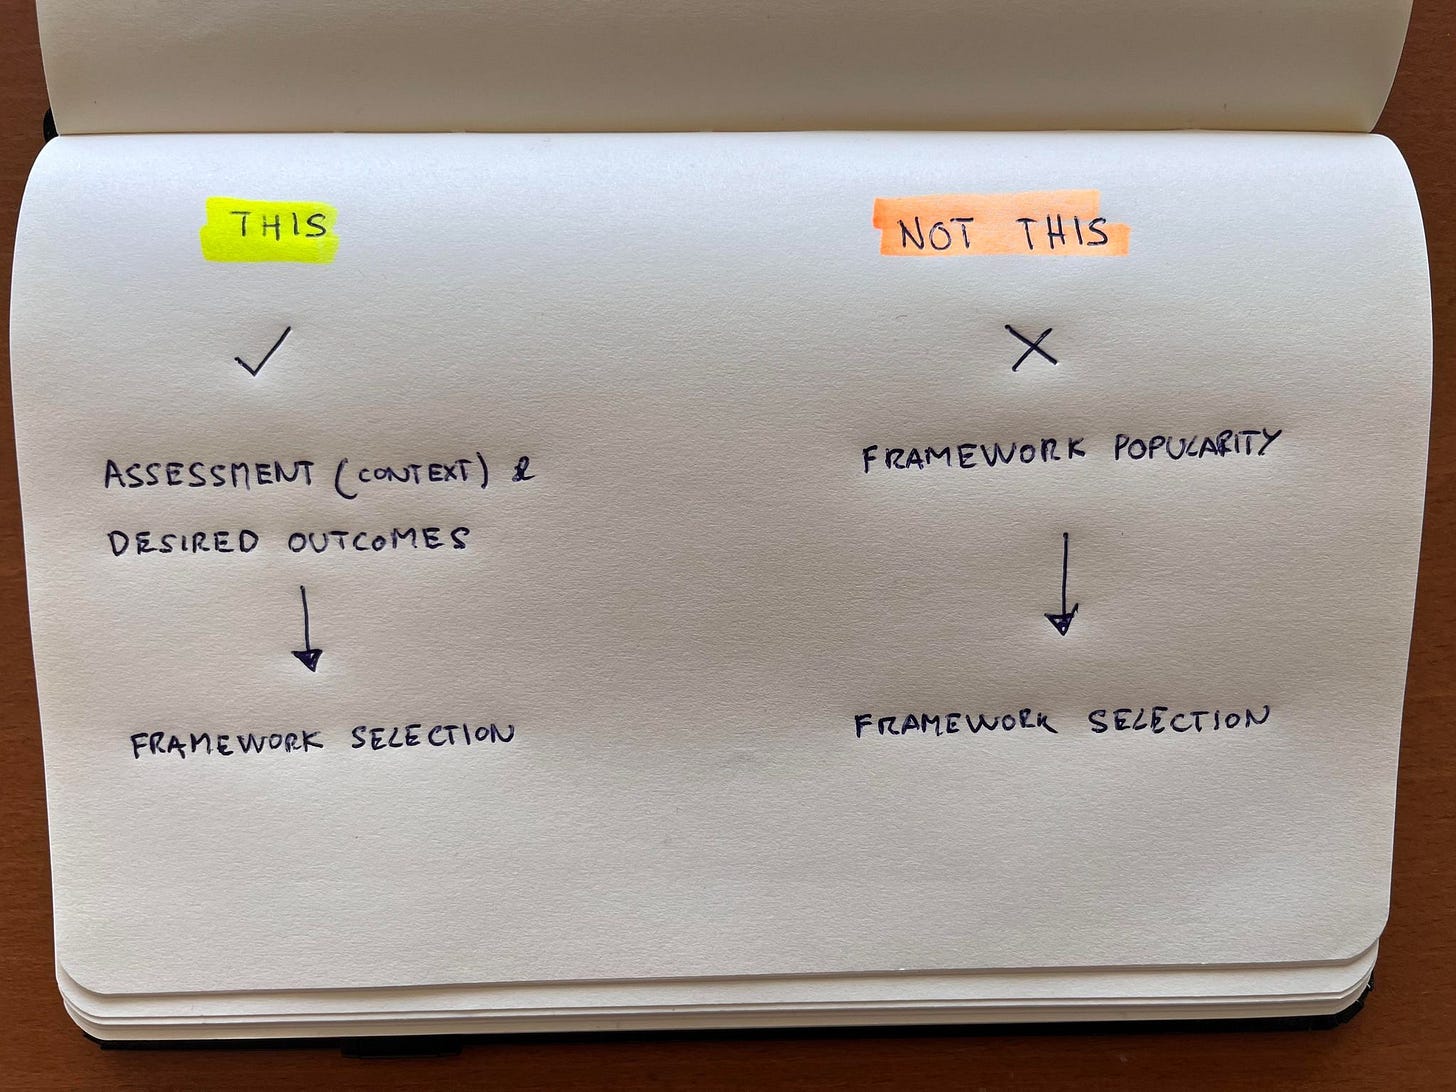 THIS
✓
ASSESSMENT (CONTEXT) &
DESIRED OUTCOMES
↓
FRAMEWORK SELECTION
NOT THIS
✗
FRAMEWORK POPULARITY
↓
FRAMEWORK SELECTION